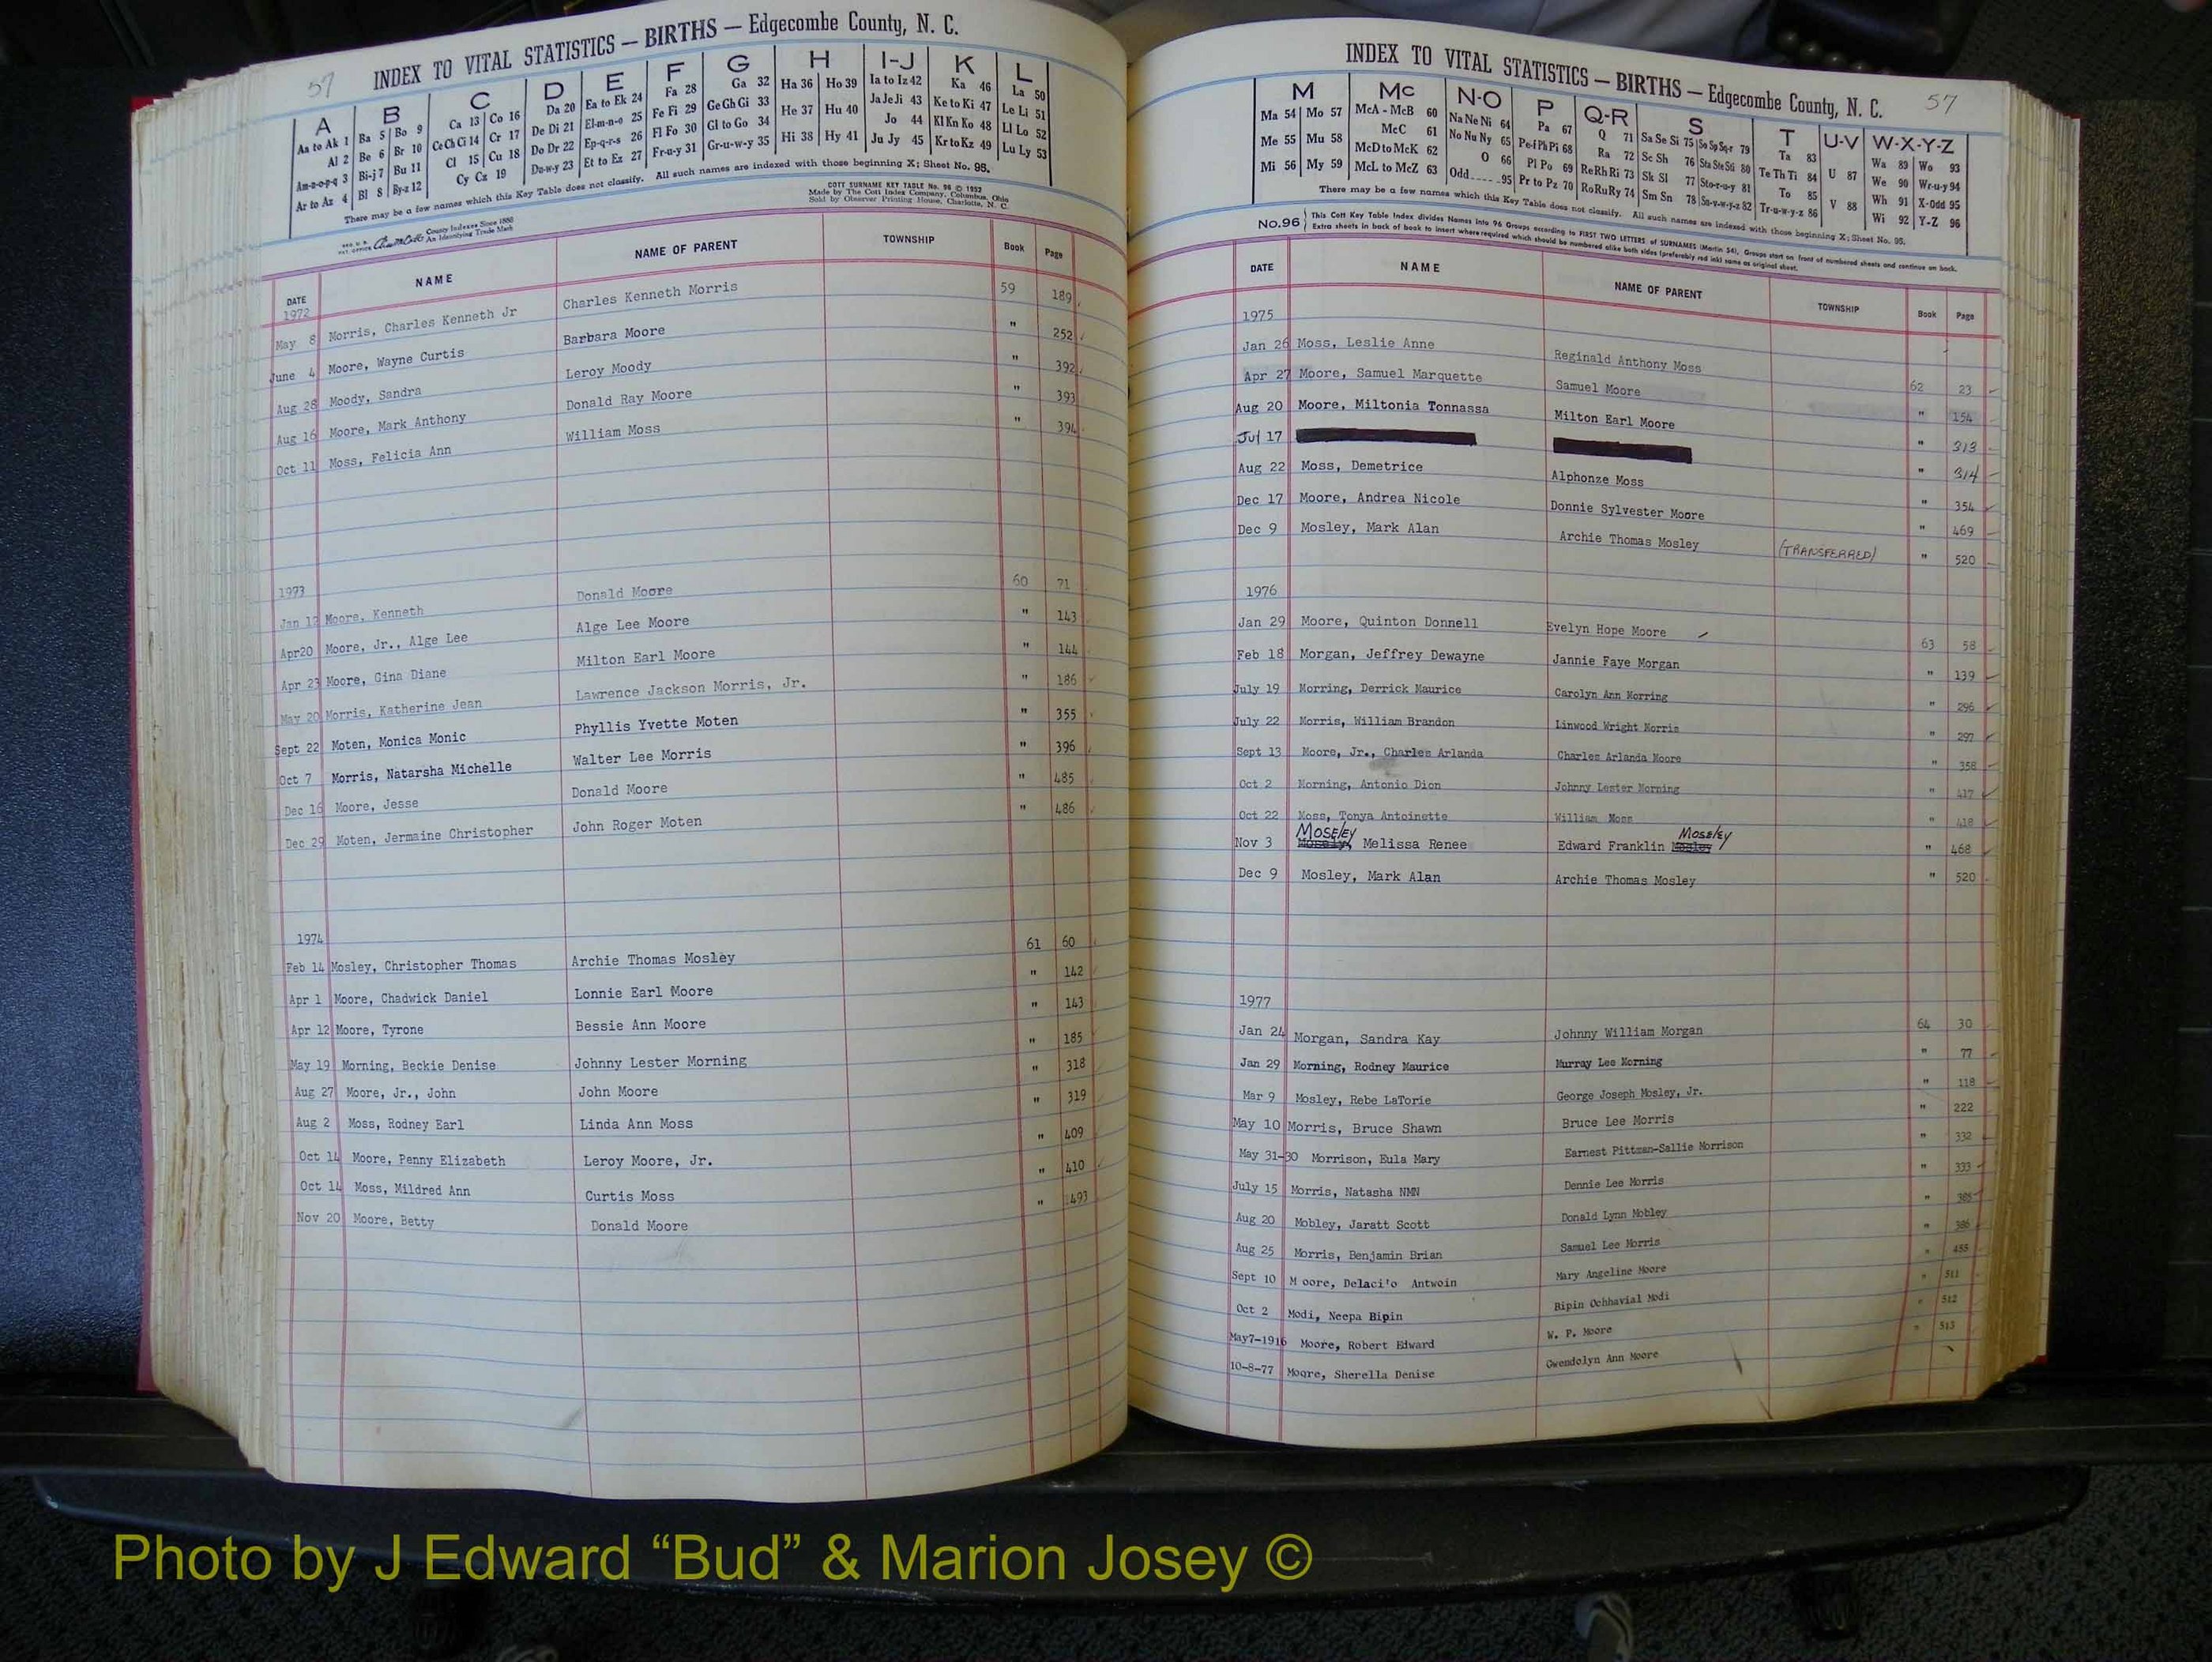 57
INDEX TO VITAL STATISTICS — BIRTHS — Edgecombe County, N. C.
A B C D E F G H I-J K L
Aa to Ak 1 Ba 5 Bo 9 Ca 13 Co 16 Da 20 Ea to Ek 24 Fa 28 Ga 32 Ha 36 Ho 39 Ia to Iz 42 Ka 46 La 50
Al 2 Be 6 Br 10 Ce Ch Ci 14 Cr 17 De Di 21 El-m-n-o 25 Fe Fi 29 Ge Gh Gi 33 He 37 Hu 40 Ja Je Ji 43 Ke to Ki 47 Le Li 51
Am-n-o-p-q 3 Bi-j 7 Bu 11 Cl 15 Cu 18 Do Dr 22 Ep-q-r-s 26 Fl Fo 30 Gl to Go 34 Hi 38 Hy 41 Jo 44 Kl Kn Ko 48 Ll Lo 52
Ar to Az 4 Bl 8 By-z 12 Cy Cz 19 Du-w-y 23 Et to Ez 27 Fr-u-y 31 Gr-u-w-y 35 Ju Jy 45 Kr to Kz 49 Lu Ly 53
There may be a few names which this Key Table does not classify. All such names are indexed with those beginning X; Sheet No. 95.
COTT SURNAME KEY TABLE No. 96 © 1952
Made by The Cott Index Company, Columbus, Ohio
Sold by Observer Printing House, Charlotte, N. C.
County Indexes Since 1888
An Identifying Trade Mark
DATE NAME NAME OF PARENT TOWNSHIP Book Page
1972
May 8 Morris, Charles Kenneth Jr Charles Kenneth Morris 59 189
June 4 Moore, Wayne Curtis Barbara Moore " 252
Aug 28 Moody, Sandra Leroy Moody " 392
Aug 16 Moore, Mark Anthony Donald Ray Moore " 393
Oct 11 Moss, Felicia Ann William Moss " 394
1973
Jan 12 Moore, Kenneth Donald Moore 60 71
Apr20 Moore, Jr., Alge Lee Alge Lee Moore " 143
Apr 23 Moore, Gina Diane Milton Earl Moore " 144
May 20 Morris, Katherine Jean Lawrence Jackson Morris, Jr. " 186
Sept 22 Moten, Monica Monic Phyllis Yvette Moten " 355
Oct 7 Morris, Natarsha Michelle Walter Lee Morris " 396
Dec 16 Moore, Jesse Donald Moore " 485
Dec 29 Moten, Jermaine Christopher John Roger Moten " 486
1974
Feb 14 Mosley, Christopher Thomas Archie Thomas Mosley 61 60
Apr 1 Moore, Chadwick Daniel Lonnie Earl Moore " 142
Apr 12 Moore, Tyrone Bessie Ann Moore " 143
May 19 Morning, Beckie Denise Johnny Lester Morning " 185
Aug 27 Moore, Jr., John John Moore " 318
Aug 2 Moss, Rodney Earl Linda Ann Moss " 319
Oct 14 Moore, Penny Elizabeth Leroy Moore, Jr. " 409
Oct 14 Moss, Mildred Ann Curtis Moss " 410
Nov 20 Moore, Betty Donald Moore " 493
INDEX TO VITAL STATISTICS — BIRTHS — Edgecombe County, N. C.
57
M Mc N-O P Q-R S T U-V W-X-Y-Z
Ma 54 Mo 57 McA - McB 60 Na Ne Ni 64 Pa 67 Q 71 Sa Se Si 75 So Sp Sq-r 79 Ta 83 Wa 89 Wo 93
Me 55 Mu 58 McC 61 No Nu Ny 65 Pe-f Ph Pi 68 Ra 72 Sc Sh 76 Sta Ste Sti 80 Te Th Ti 84 U 87 We 90 Wr-u-y 94
Mi 56 My 59 McD to McK 62 O 66 Pl Po 69 Re Rh Ri 73 Sk Sl 77 Sto-r-u-y 81 To 85 Wh 91 X-Odd 95
McL to McZ 63 Odd 95 Pr to Pz 70 Ro Ru Ry 74 Sm Sn 78 Su-v-w-y-z 82 Tr-u-w-y-z 86 V 88 Wi 92 Y-Z 96
There may be a few names which this Key Table does not classify. All such names are indexed with those beginning X; Sheet No. 95.
No.96 This Cott Key Table Index divides Names into 96 Groups according to FIRST TWO LETTERS of SURNAMES (Martin 54). Groups start on front of numbered sheets and continue on back.
Extra sheets in back of book to insert where required which should be numbered alike both sides (preferably red ink) same as original sheet.
DATE NAME NAME OF PARENT TOWNSHIP Book Page
1975
Jan 26 Moss, Leslie Anne Reginald Anthony Moss 62 23
Apr 27 Moore, Samuel Marquette Samuel Moore " 154
Aug 20 Moore, Miltonia Tonnassa Milton Earl Moore " 313
Jul 17 " 314
Aug 22 Moss, Demetrice Alphonze Moss " 354
Dec 17 Moore, Andrea Nicole Donnie Sylvester Moore " 469
Dec 9 Mosley, Mark Alan Archie Thomas Mosley (TRANSFERRED) " 520
1976
Jan 29 Moore, Quinton Donnell Evelyn Hope Moore 63 58
Feb 18 Morgan, Jeffrey Dewayne Jannie Faye Morgan " 139
July 19 Morring, Derrick Maurice Carolyn Ann Morring " 296
July 22 Morris, William Brandon Linwood Wright Morris " 297
Sept 13 Moore, Jr., Charles Arlanda Charles Arlanda Moore " 358
Oct 2 Morning, Antonio Dion Johnny Lester Morning " 417
Oct 22 Moss, Tonya Antoinette William Moss " 418
MOSELEY Moseley
Nov 3 Melissa Renee Edward Franklin " 468
Dec 9 Mosley, Mark Alan Archie Thomas Mosley " 520
1977
Jan 24 Morgan, Sandra Kay Johnny William Morgan 64 30
Jan 29 Morning, Rodney Maurice Murray Lee Morning " 77
Mar 9 Mosley, Rebe LaTorie George Joseph Mosley, Jr. " 118
May 10 Morris, Bruce Shawn Bruce Lee Morris " 222
May 31-30 Morrison, Eula Mary Earnest Pittman-Sallie Morrison " 332
July 15 Morris, Natasha NMN Dennie Lee Morris " 333
Aug 20 Mobley, Jaratt Scott Donald Lynn Mobley " 385
Aug 25 Morris, Benjamin Brian Samuel Lee Morris " 386
Sept 10 M oore, Delaci'o Antwoin Mary Angeline Moore " 455
Oct 2 Modi, Neepa Bipin Bipin Ochhavial Modi " 511
May7-1916 Moore, Robert Edward W. P. Moore " 512
10-8-77 Moore, Sherella Denise Gwendolyn Ann Moore " 513
Photo by J Edward “Bud” & Marion Josey ©